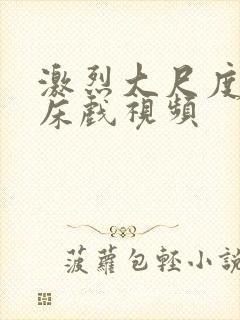 激烈大尺度
床戲視頻
菠蘿包輕小說